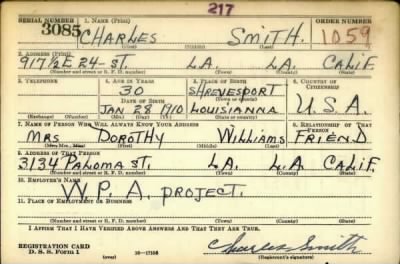 217
SERIAL NUMBER 1. NAME (Print) ORDER NUMBER
3085 CHARLES SMITH. 1059
2. ADDRESS (Print)
917½ E 24-ST L.A. L.A. CALIF
(Number and street or R. F. D. number) (Town) (County) (State)
3. TELEPHONE 4. AGE IN YEARS 5. PLACE OF BIRTH 6. COUNTRY OF CITIZENSHIP
30 SHREVESPORT
DATE OF BIRTH (Town or county)
JAN 28 1910 LOUISIANNA U.S.A.
(Exchange) (Number) (Mo.) (Day) (Yr.) (State or country)
7. NAME OF PERSON WHO WILL ALWAYS KNOW YOUR ADDRESS 8. RELATIONSHIP OF THAT PERSON
MRS DOROTHY WILLIAMS FRIEND
(Mr., Mrs., Miss) (First) (Middle) (Last)
9. ADDRESS OF THAT PERSON
3134 PALOMA ST. L.A. L.A. CALIF.
(Number and street or R. F. D. number) (Town) (County) (State)
10. EMPLOYER'S NAME
W.P.A. PROJECT.
11. PLACE OF EMPLOYMENT OR BUSINESS
(Number and street or R. F. D. number) (Town) (County) (State)
I AFFIRM THAT I HAVE VERIFIED ABOVE ANSWERS AND THAT THEY ARE TRUE.
REGISTRATION CARD
D. S. S. Form 1 (over) 16-17105 Charles Smith
(Registrant's signature)